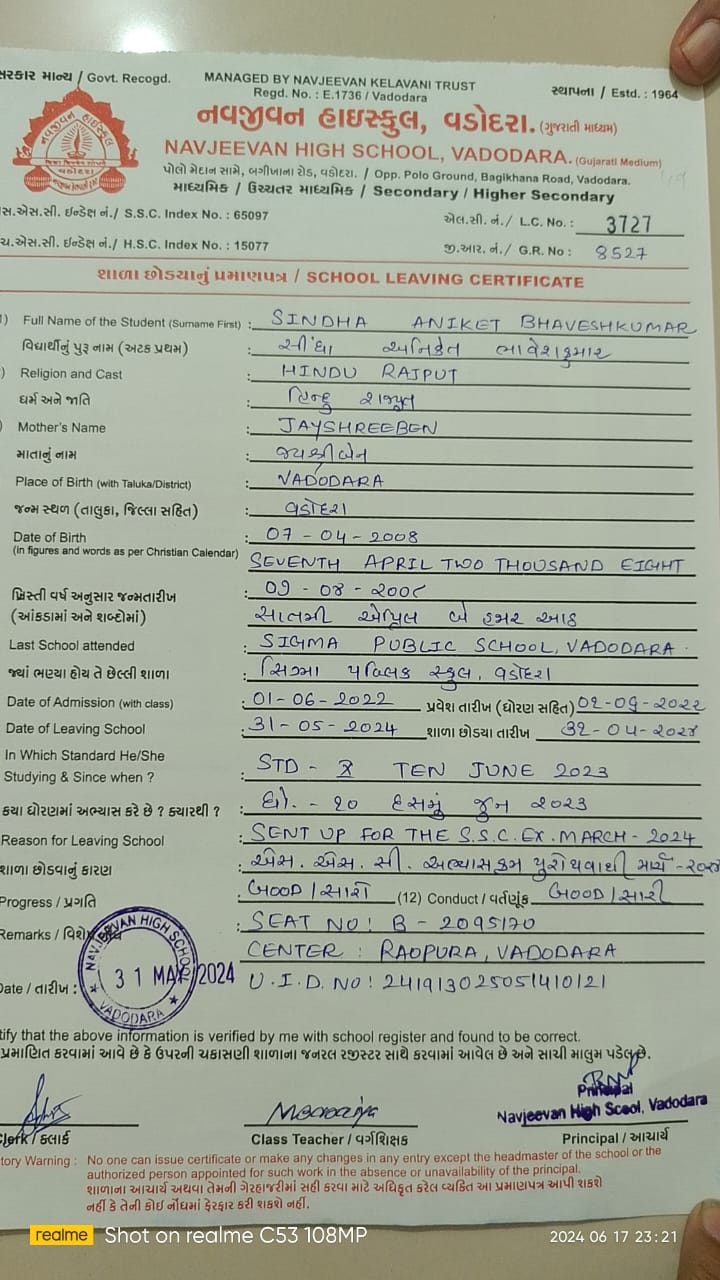 સરકાર માન્ય / Govt. Recogd.
MANAGED BY NAVJEEVAN KELAVANI TRUST
Regd. No. : E.1736 / Vadodara
સ્થાપના / Estd. : 1964
નવજીવન હાઇસ્કુલ, વડોદરા. (ગુજરાતી માધ્યમ)
NAVJEEVAN HIGH SCHOOL, VADODARA. (Gujarati Medium)
પોલો મેદાન સામે, બગીખાના રોડ, વડોદરા. / Opp. Polo Ground, Bagikhana Road, Vadodara.
માધ્યમિક / ઉચ્ચતર માધ્યમિક / Secondary / Higher Secondary
સ.એસ.સી. ઈન્ડેક્ષ નં./ S.S.C. Index No. : 65097
એલ.સી. નં./ L.C. No. : 3727
ચ.એસ.સી. ઈન્ડેક્ષ નં./ H.S.C. Index No. : 15077
જી.આર. નં./ G.R. No : 8527
શાળા છોડ્યાનું પ્રમાણપત્ર / SCHOOL LEAVING CERTIFICATE
) Full Name of the Student (Surname First) : SINDHA ANIKET BHAVESHKUMAR
વિદ્યાર્થીનું પુરૂ નામ (અટક પ્રથમ) : સીંધા અનિકેત ભાવેશકુમાર
) Religion and Cast : HINDU RAJPUT
ધર્મ અને જાતિ : હિન્દુ રાજપુત
) Mother's Name : JAYSHREEBEN
માતાનું નામ : જયશ્રીબેન
Place of Birth (with Taluka/District) : VADODARA
જન્મ સ્થળ (તાલુકા, જિલ્લા સહિત) : વડોદરા
Date of Birth : 07-04-2008
(in figures and words as per Christian Calendar) SEVENTH APRIL TWO THOUSAND EIGHT
ખ્રિસ્તી વર્ષ અનુસાર જન્મતારીખ : ૦૭-૦૪-૨૦૦૮
(આંકડામાં અને શબ્દોમાં) સાતમી એપ્રિલ બે હજાર આઠ
Last School attended : SIGMA PUBLIC SCHOOL, VADODARA.
જ્યાં ભણ્યા હોય તે છેલ્લી શાળા : સિગ્મા પબ્લિક સ્કુલ, વડોદરા
Date of Admission (with class) : 01-06-2022 પ્રવેશ તારીખ (ધોરણ સહિત) ૦૧-૦૬-૨૦૨૨
Date of Leaving School : 31-05-2024 શાળા છોડ્યા તારીખ ૩૧-૦૫-૨૦૨૪
In Which Standard He/She
Studying & Since when ? : STD - X TEN JUNE 2023
કયા ધોરણમાં અભ્યાસ કરે છે ? ક્યારથી ? : ધો. - ૧૦ દસમું જુન ૨૦૨૩
Reason for Leaving School : SENT UP FOR THE S.S.C. EX. MARCH - 2024
શાળા છોડવાનું કારણ : એસ. એસ. સી. અભ્યાસક્રમ માર્ચ -૨૦૨૪
Progress / પ્રગતિ : GOOD / સારી (12) Conduct / વર્તણૂંક GOOD / સારી
Remarks / : SEAT NO : B - 2095170
CENTER : RAOPURA, VADODARA
Date / તારીખ : 31 MAY 2024 U.I.D. NO : 241913025051410121
NAVJEEVAN HIGH SCHOOL
★ VADODARA ★
tify that the above information is verified by me with school register and found to be correct.
પ્રમાણિત કરવામાં આવે છે કે ઉપરની ચકાસણી શાળાના જનરલ રજીસ્ટર સાથે કરવામાં આવેલ છે અને સાચી માલુમ પડેલ છે.
Principal
Navjeevan High Scool, Vadodara
Clerk / કલાર્ક
Class Teacher / વર્ગશિક્ષક
Principal / આચાર્ય
tory Warning : No one can issue certificate or make any changes in any entry except the headmaster of the school or the
authorized person appointed for such work in the absence or unavailability of the principal.
શાળાના આચાર્ય અથવા તેમની ગેરહાજરીમાં સહી કરવા માટે અધિકૃત કરેલ વ્યક્તિ આ પ્રમાણપત્ર આપી શકશે
નહીં કે તેની કોઇ નોંધમાં ફેરફાર કરી શકશે નહીં.
realme Shot on realme C53 108MP
2024 06 17 23:21